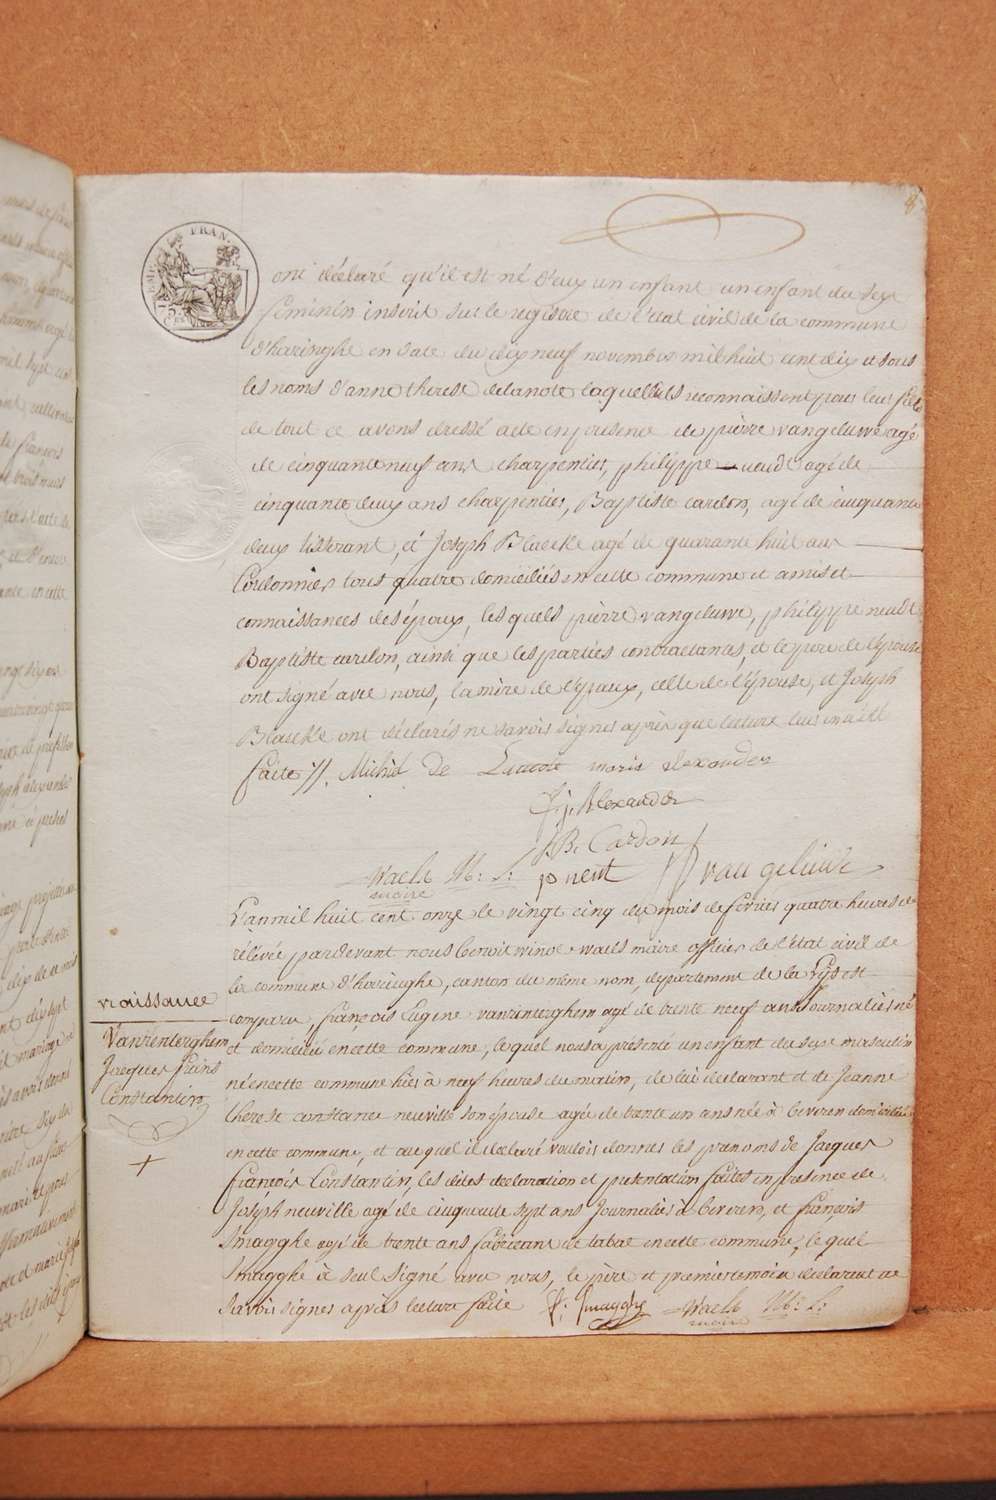 8
EMP. FRAN.
ont déclaré qu'il est né d'eux un enfant un enfant du sexe
feminin inscrit sur le registre de l'etat civil de la commune
d'haringhe en date du dix neuf novembre mil huit cent dix et sous
les noms d'anne therese delanote laquelle ils reconnaissent pour leur fille
de tout ce avons dressé acte en presence de pierre vangeluwe agé
de cinquante neuf ans charpentier, philippe neudt agé de
cinquante deux ans charpentier, Baptiste cardon, agé de cinquante
deux ans, et Joseph Blaeckle agé de quarante huit ans
Cordonnier tous quatre domiciliés en cette commune et amis et
connaissances des époux, les quels pierre vangeluwe, philippe neudt
Baptiste cardon, ainsi que les parties contractantes, et le pere de l'epouse
ont signé avec nous, la mère de l'epoux, celle de l'épouse, et Joseph
Blaeckle ont déclarés ne savoir signer après que lecture leur en a été
faite //. Michiel De Lanote marie alexander
f. j. Alexander
J B. Cardon
Waels M: L: p neut vangeluwe
maire
L'an mil huit cent onze le vingt cinq du mois de fevrier quatre heures de
rélevée pardevant nous benoit winoc waels maire officier de l'état civil de
la commune d'haringhe, canton du même nom, departement de la Lys est
comparu, françois Eugene vanrenterghem agé de trente neuf ans Journalier né
et domicilié en cette commune, le quel nous a présenté un enfant du sexe masculin
né en cette commune hier à neuf heures du matin, de lui declarant et de Jeanne
therese constance neuville son épouse agée de trente un ans née à beveren domiciliée
en cette commune, et au quel il a declaré vouloir donner les prenoms de Jacques
françois Constantin, les dites declaration et presentation faites en presence de
Joseph neuville agé de cinquante sept ans Journalier à beveren, et françois
Smagghe agé de trente ans fabricant de tabac en cette commune, le quel
Smagghe à seul signé avec nous, le père et premier temoin declarent ne
savoir signer après lecture faite f: Smagghe Waels M: L:
maire
naissance
Vanrenterghem
Jacques frans
Constantin
+